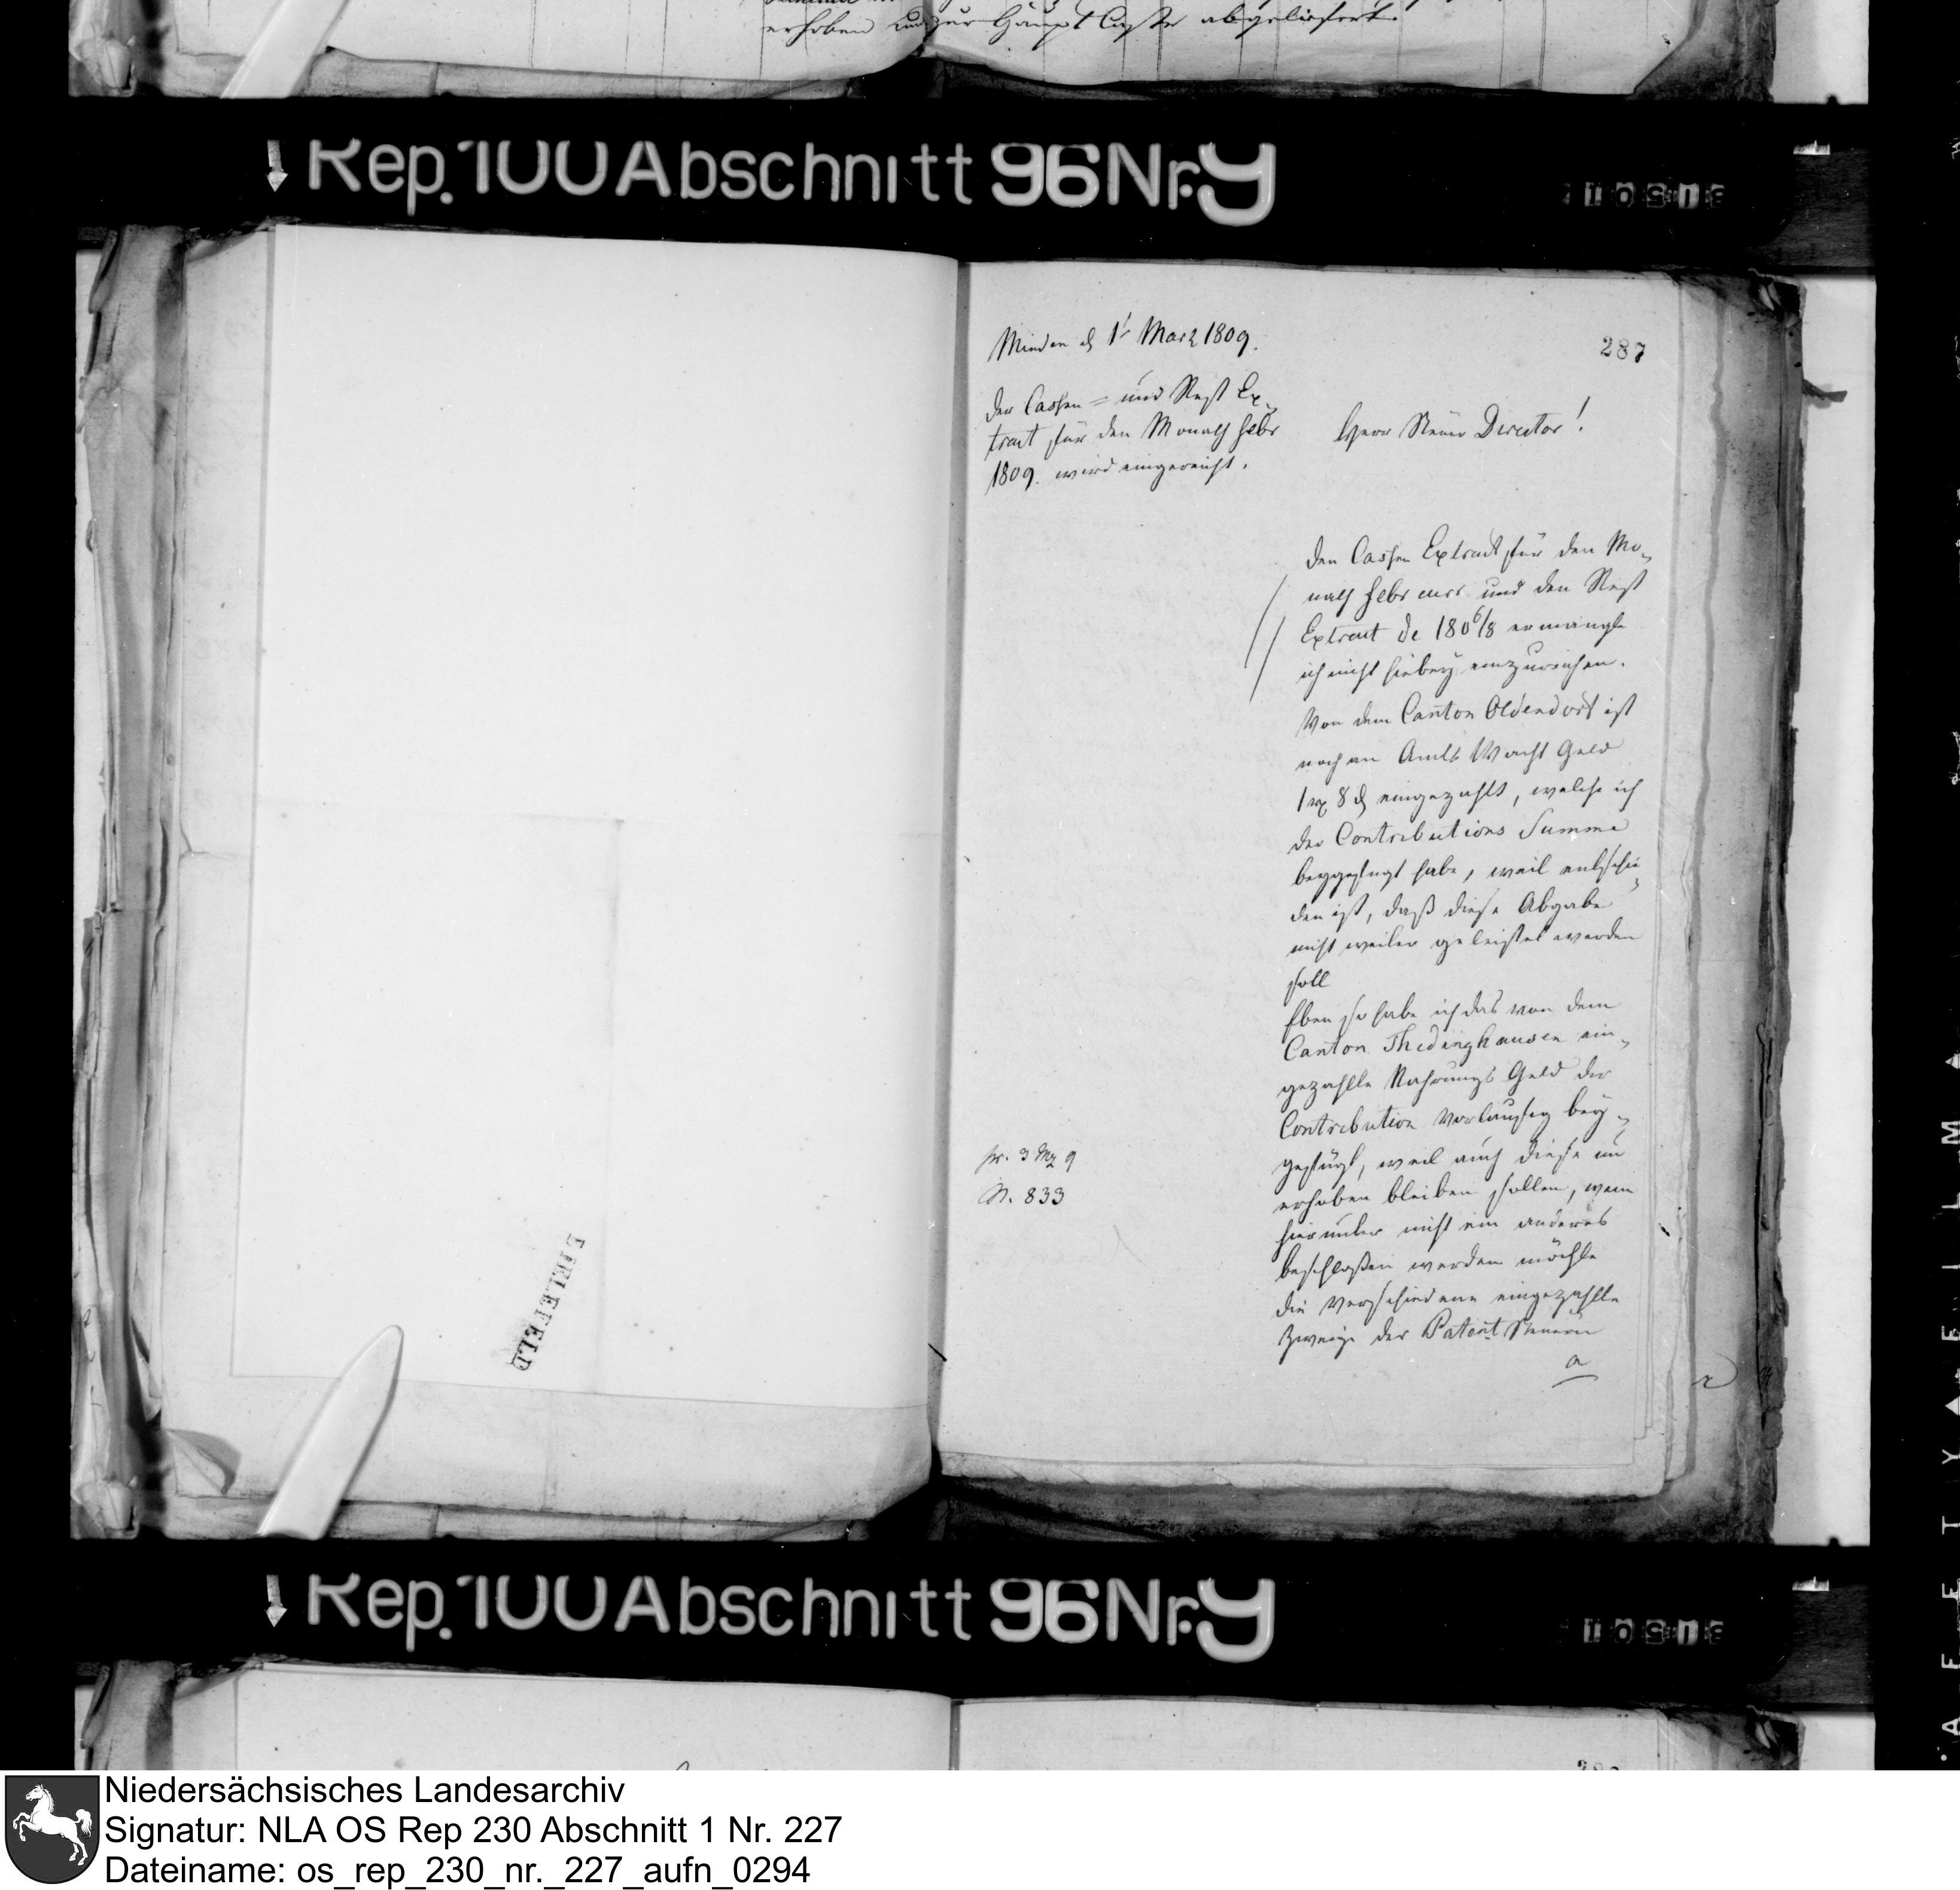 erhoben und zur Haupt Casse abgeliefert.
Rep. 100 Abschnitt 96 Nr. 9
Minden d 1t Marz 1809.
287
der Cassen- und Rest Ex-
tract für den Monath Febr
1809. wird eingereicht.
Herr Steuer Director!
den Cassen Extract für den Mo-
nath Febr curr und den Rest
Extract de 1806/8 ermangle
ich nicht hiebey einzureichen.
Von dem Canton Oldendorf ist
noch an Amts Wacht Geld
1 rx 8 d eingezahlt, welche ich
der Contributions Summe
beygefügt habe, weil entschie-
den ist, daß diese Abgabe
nicht weiter geleistet werden
soll
Eben so habe ich das von dem
Canton Thedinghausen ein-
gezahlte Nahrungs Geld der
Contribution vorläufig bey-
gefügt, weil auch diese un
erhoben bleiben sollen, wenn
hierunter nicht ein anderes
beschloßen werden möchte
die verschiedene eingezahlte
Zweige der Patent Steuern
a
pr. 3 Mz 9
N. 833
BIELEFELD
Rep. 100 Abschnitt 96 Nr. 9
Niedersächsisches Landesarchiv
Signatur: NLA OS Rep 230 Abschnitt 1 Nr. 227
Dateiname: os_rep_230_nr._227_aufn_0294